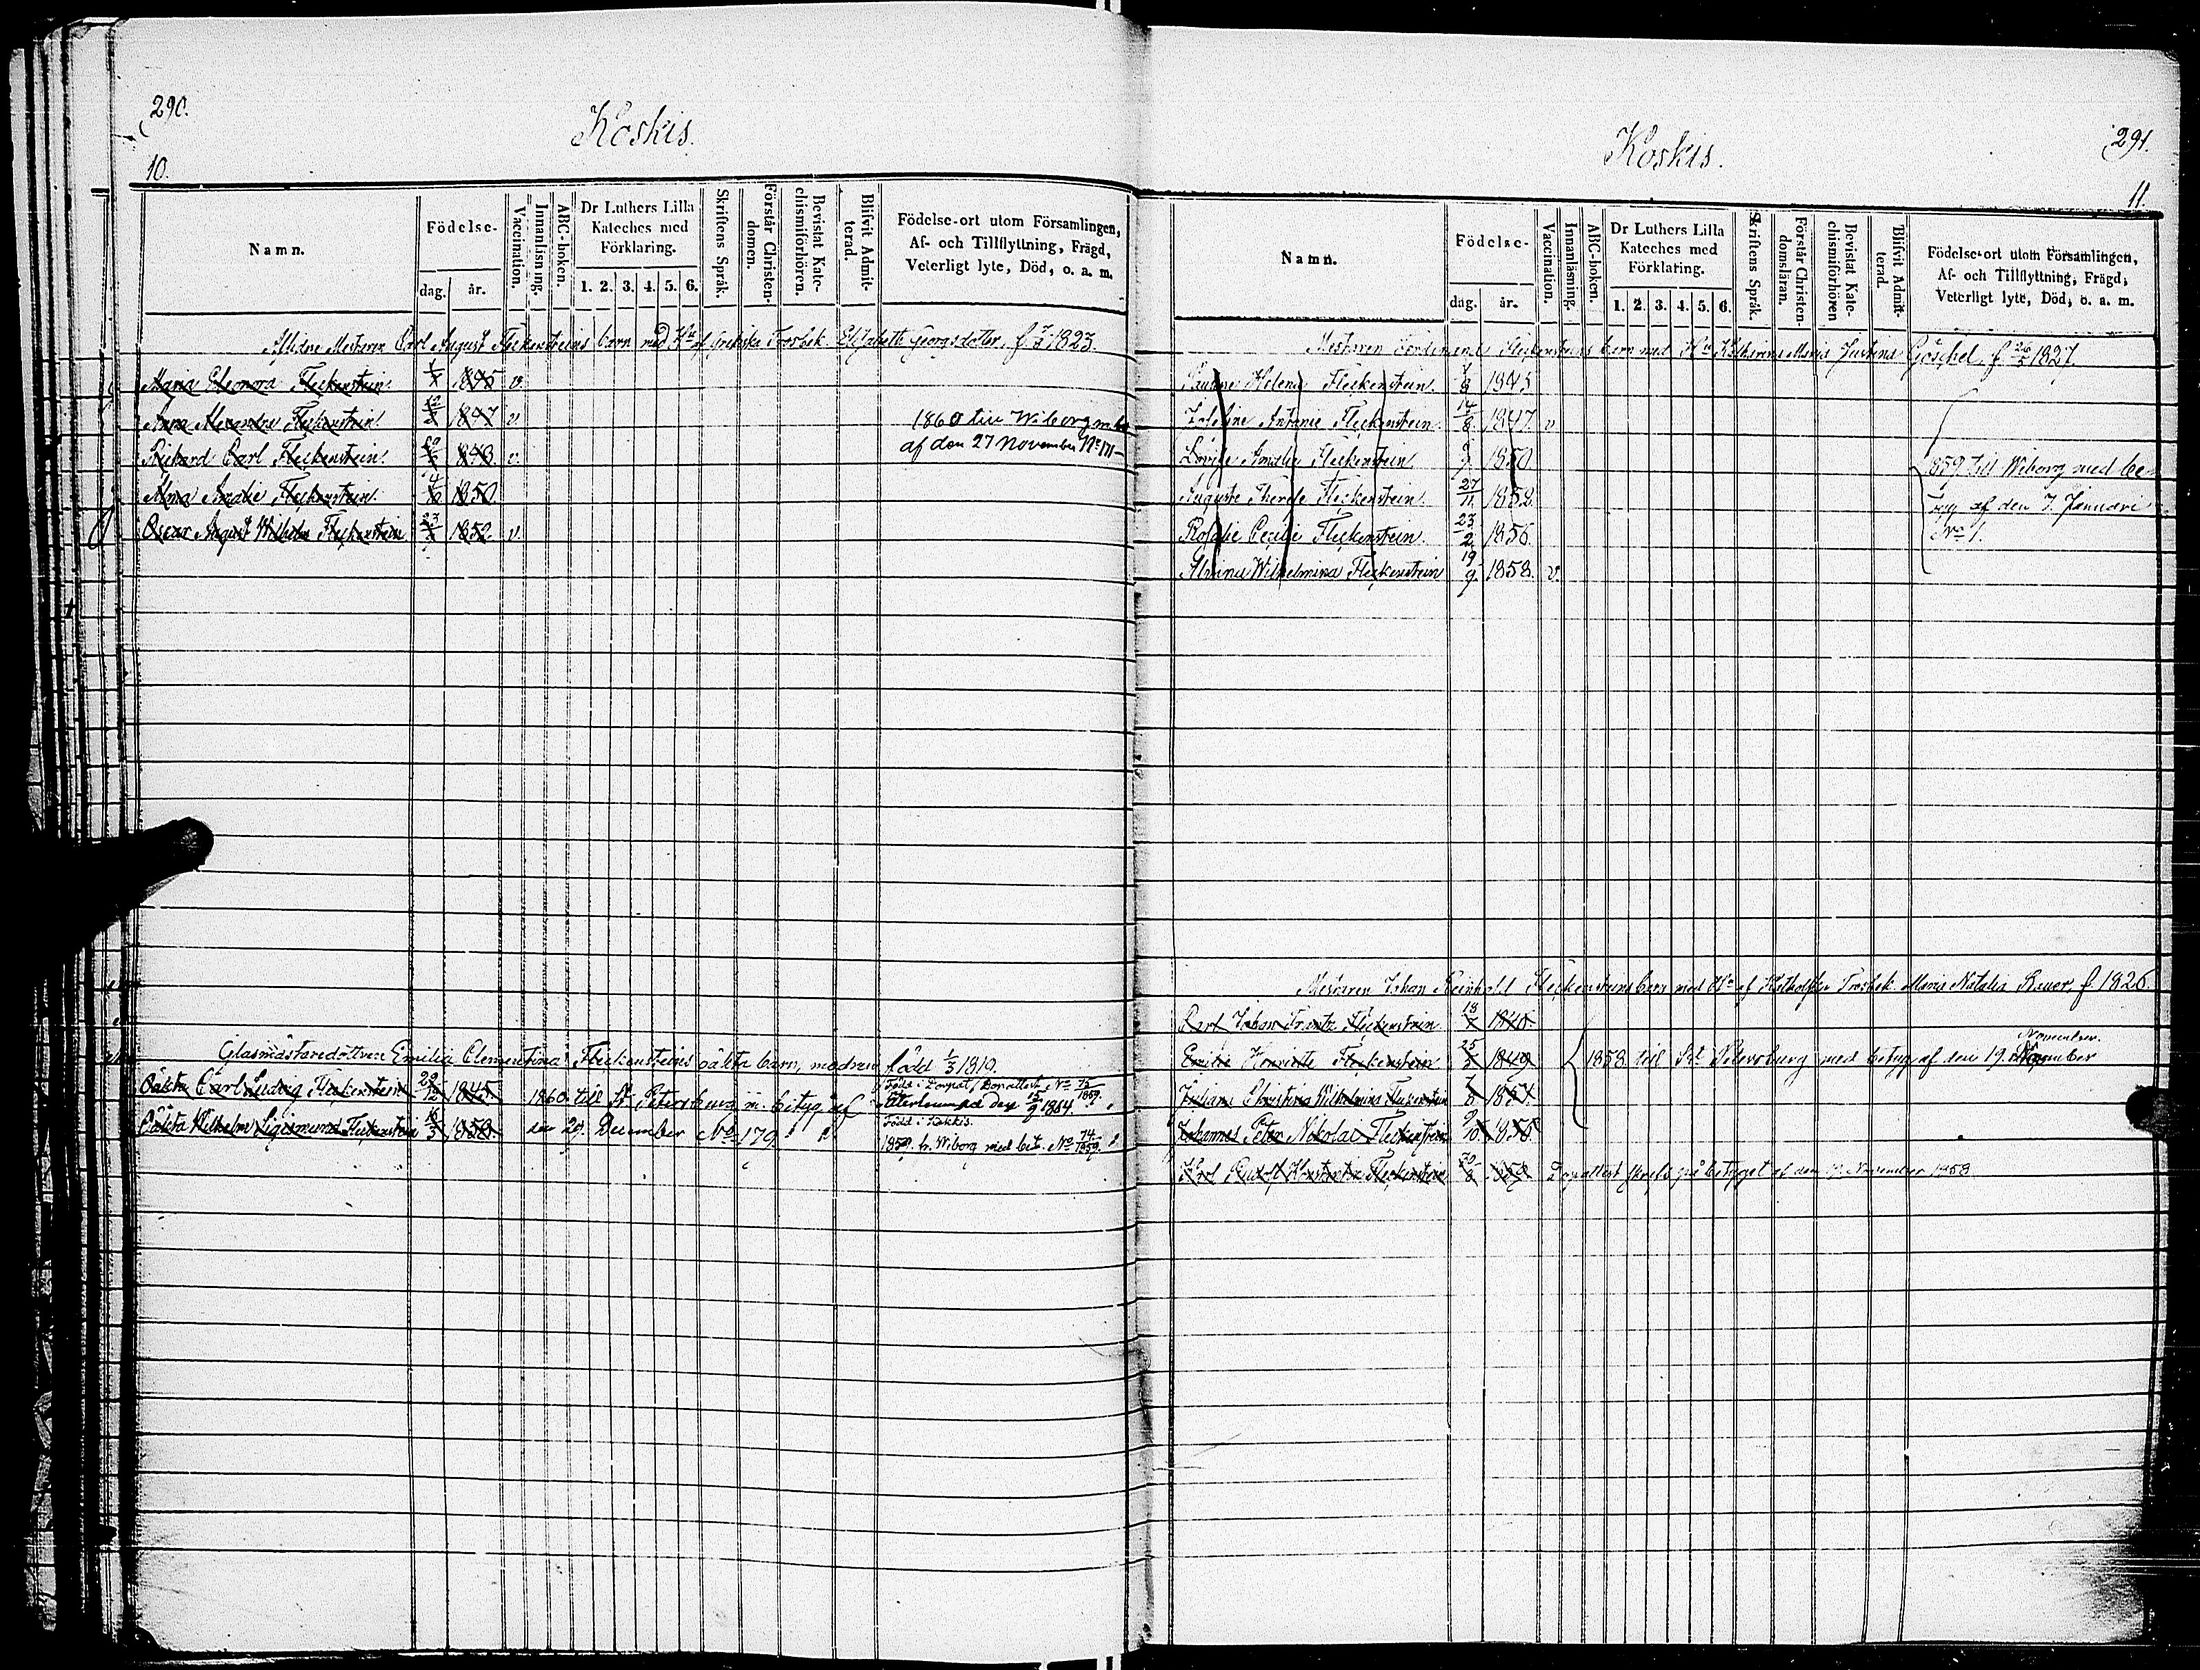 290.
Koskis.
10.
Namn.
Födelse-
dag. år.
Vaccination.
Innanläsning.
ABC-boken.
Dr Luthers Lilla
Kateches med
Förklaring.
1. 2. 3. 4. 5. 6.
Skriftens Språk.
Förstår Christen-
domen.
Bevistat Kate-
chismiförhören.
Blifvit Admit-
terad.
Födelse-ort utom Församlingen,
Af- och Tillflyttning, Frägd,
Veterligt lyte, Död, o. a. m.
Aflidne Mestaren Carl August Fleckensteins barn med Hu af Grekiska Trosbek. Elisabeth Georgsdotter, f. 1823.
Maria Eleonora Fleckenstein 1845 v.
Anna Alexandra Fleckenstein 1847 v. 1860 till Wiborg m. b.
Rickard Carl Fleckenstein 1848. v. af den 27 November No 171
Alma Amalie Fleckenstein 1850
Oscar August Wilhelm Fleckenstein 23 1852 v.
Glasmästaredottren Emilia Clementina Fleckensteins oäkta barn, modren född 1/3 1819.
Oäkta Carl Ludvig Fleckenstein 29/12 1845. 1860 till St Petersburg m. betyg af
Född i Dorpat,
den 1854.
Oäkta Wilhelm Sigismund Fleckenstein 16/3 1850. den 29. December No 179.
Född i Kokkis.
1859. fr. Wiborg med bet. No 74/1859.
291.
Koskis.
11.
Namn.
Födelse-
dag. år.
Vaccination.
Innanläsning.
ABC-boken.
Dr Luthers Lilla
Kateches med
Förklaring.
1. 2. 3. 4. 5. 6.
Skriftens Språk.
Förstår Christen-
domsläran.
Bevistat Kate-
chismiförhören
Blifvit Admit-
terad.
Födelse-ort utom Församlingen,
Af- och Tillflyttning, Frägd,
Veterligt lyte, Död, o. a. m.
Mestaren Ferdinands Fleckensteins barn med Hu Katharina Maria Justina Göschel, f. 26 1827.
Pauline Helena Fleckenstein. 1845
Antonie Fleckenstein 14/8 1847. v
Lovise Amalie Fleckenstein 1850
1859 till Wiborg med be-
Auguste Therese Fleckenstein. 27/11 1852.
tyg af den 7. Januari
Rosalie Cecilie Fleckenstein. 23/2 1856.
No 1.
Alvina Wilhelmina Fleckenstein 19/9 1858. v.
Mestaren Johan Reinhold Fleckensteins barn med Hu af Katholska Trosbek. Maria Natalia Bauer, f. 1826.
Carl Johan Frantz Fleckenstein 18
Emilie Henriette Fleckenstein 25 1849
November.
1858 till St Petersburg med betyg af den 19.
Juliana Christina Wilhelmina Fleckenstein 1854
Johannes Peter Nikolai Fleckenstein 9/10 1856
Karl Rudolf Konstantin Fleckenstein 30/8 1858 på betyget af den November 1858